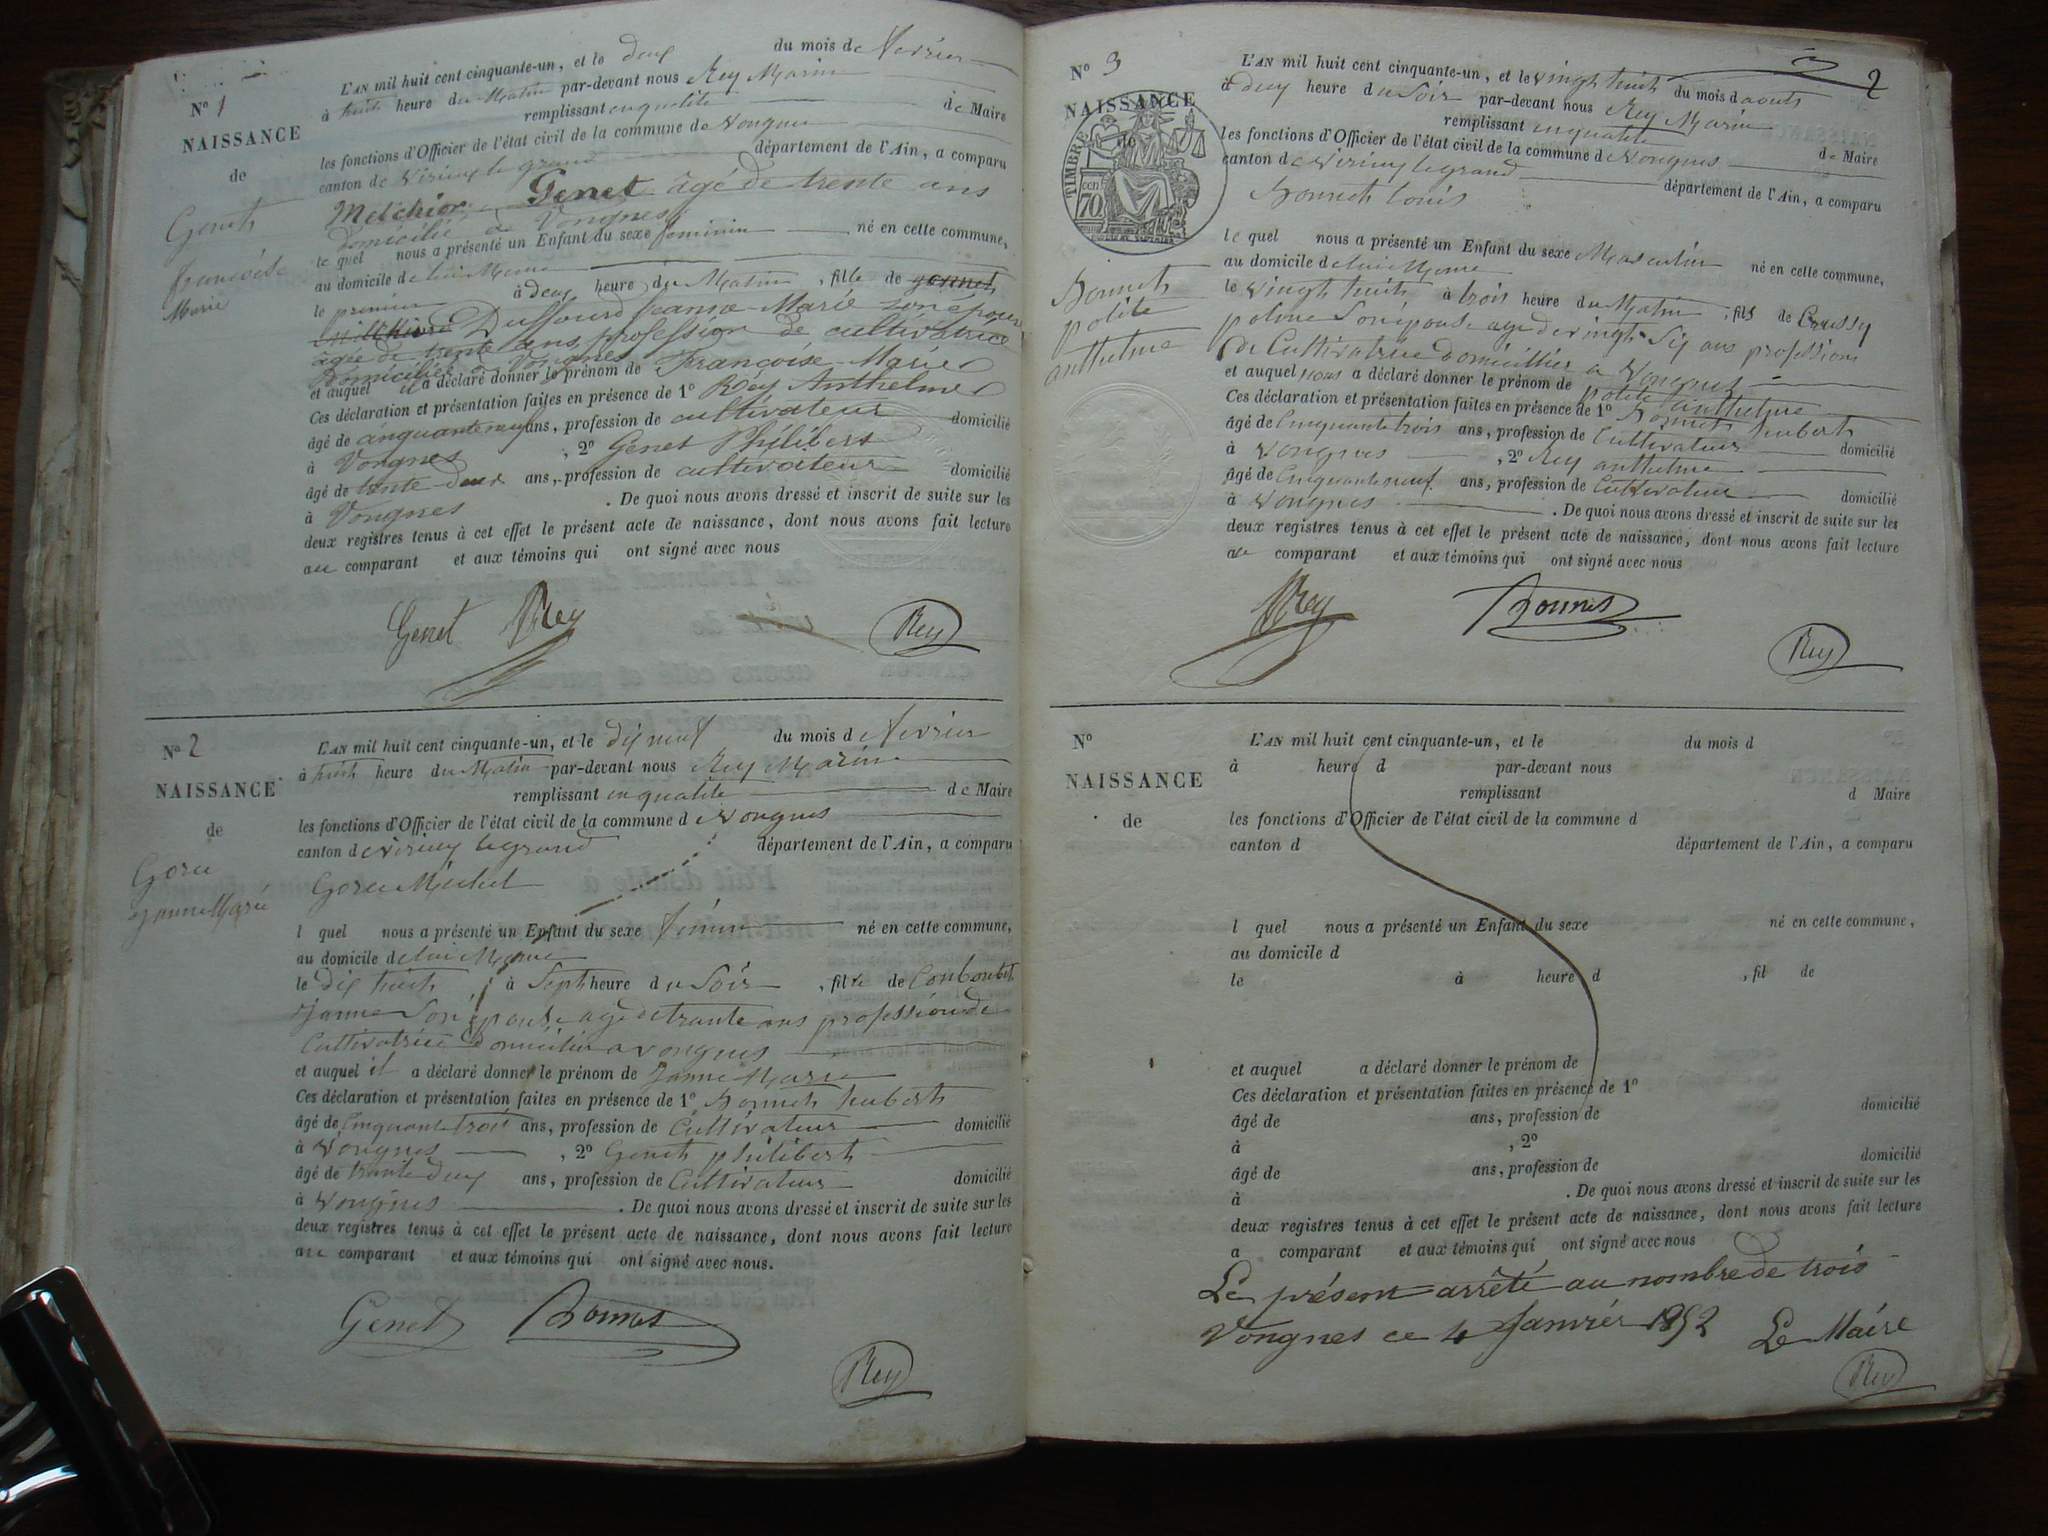 N° 1
NAISSANCE
de
Genet
françoise
Marie
L'AN mil huit cent cinquante-un, et le deux du mois de Février
à huit heure du Matin par-devant nous Rey Marin
remplissant en qualité de Maire
les fonctions d'Officier de l'état civil de la commune de Vongnes
canton de Virieux le grand département de l'Ain, a comparu
Melchior Genet âgé de trente ans
domicilié à Vongnes
le quel nous a présenté un Enfant du sexe feminin né en cette commune,
au domicile de lui Meme
le premier à deux heure du Matin, fille de
Dufourd Jeanne-Marie son épouse
âgée de trente ans profession de cultivatrice
domiciliée à Vongnes
et auquel il a déclaré donner le prénom de Françoise Marie
Ces déclaration et présentation faites en présence de 1° Rey Anthelme
âgé de cinquante neuf ans, profession de cultivateur domicilié
à Vongnes, 2° Genet Philibert
âgé de trente deux ans, profession de cultivateur domicilié
à Vongnes. De quoi nous avons dressé et inscrit de suite sur les
deux registres tenus à cet effet le présent acte de naissance, dont nous avons fait lecture
au comparant et aux témoins qui ont signé avec nous
Genet Rey Rey
N° 2
NAISSANCE
de
Goru
jeanne Marie
L'AN mil huit cent cinquante-un, et le dix neuf du mois d Fevrier
à huit heure du Matin par-devant nous Rey Marin
remplissant en qualite de Maire
les fonctions d'Officier de l'état civil de la commune d Vongnes
canton d Virieux le grand département de l'Ain, a comparu
Goru Michel
l quel nous a présenté un Enfant du sexe né en cette commune,
au domicile de lui Meme
le dix huit à Sept heure du Soir, fille de
Janne Son épouse age de trante ans profession de
Cultivatrice domicilie a vongnes
et auquel il a déclaré donner le prénom de Janne Marie
Ces déclaration et présentation faites en présence de 1° Bonnet hubert
âgé de Cinquante trois ans, profession de Cultivateur domicilié
à Vongnes, 2° Genet philibert
âgé de trante deux ans, profession de Cultivateur domicilié
à Vongnes. De quoi nous avons dressé et inscrit de suite sur les
deux registres tenus à cet effet le présent acte de naissance, dont nous avons fait lecture
au comparant et aux témoins qui ont signé avec nous.
Genet Bonnet
Rey
2
N° 3
NAISSANCE
de
TIMBRE
CEN 70
Bonnet
polite
anthelme
L'AN mil huit cent cinquante-un, et le vingt huit du mois d aout
à deux heure du Soir par-devant nous Rey Marin
remplissant en qualite de Maire
les fonctions d'Officier de l'état civil de la commune d Vongnes
canton de Virieux le grand département de l'Ain, a comparu
Bonnet louis
le quel nous a présenté un Enfant du sexe Masculin né en cette commune,
au domicile de lui Meme
le vingt huit à trois heure du Matin, fils de
Son epouse age de vingt Six ans profession
de Cultivatrice domicilliee a Vongnes
et auquel nous a déclaré donner le prénom de polite anthelme
Ces déclaration et présentation faites en présence de 1° Bonnet hubert
âgé de Cinquante trois ans, profession de Cultivateur domicilié
à Vongnes, 2° Rey anthelme
âgé de Cinquante neuf ans, profession de Cultivateur domicilié
à Vongnes. De quoi nous avons dressé et inscrit de suite sur les
deux registres tenus à cet effet le présent acte de naissance, dont nous avons fait lecture
au comparant et aux témoins qui ont signé avec nous
Rey Bonnet
Rey
N°
NAISSANCE
de
L'AN mil huit cent cinquante-un, et le du mois d
à heure d par-devant nous
remplissant d Maire
les fonctions d'Officier de l'état civil de la commune d
canton d département de l'Ain, a comparu
l quel nous a présenté un Enfant du sexe né en cette commune,
au domicile d
le à heure d, fil de
et auquel a déclaré donner le prénom de
Ces déclaration et présentation faites en présence de 1°
âgé de ans, profession de domicilié
à, 2°
âgé de ans, profession de domicilié
à. De quoi nous avons dressé et inscrit de suite sur les
deux registres tenus à cet effet le présent acte de naissance, dont nous avons fait lecture
a comparant et aux témoins qui ont signé avec nous
Le présent arrêté au nombre de trois
Vongnes ce 4 Janvier 1852 Le Maire
Rey